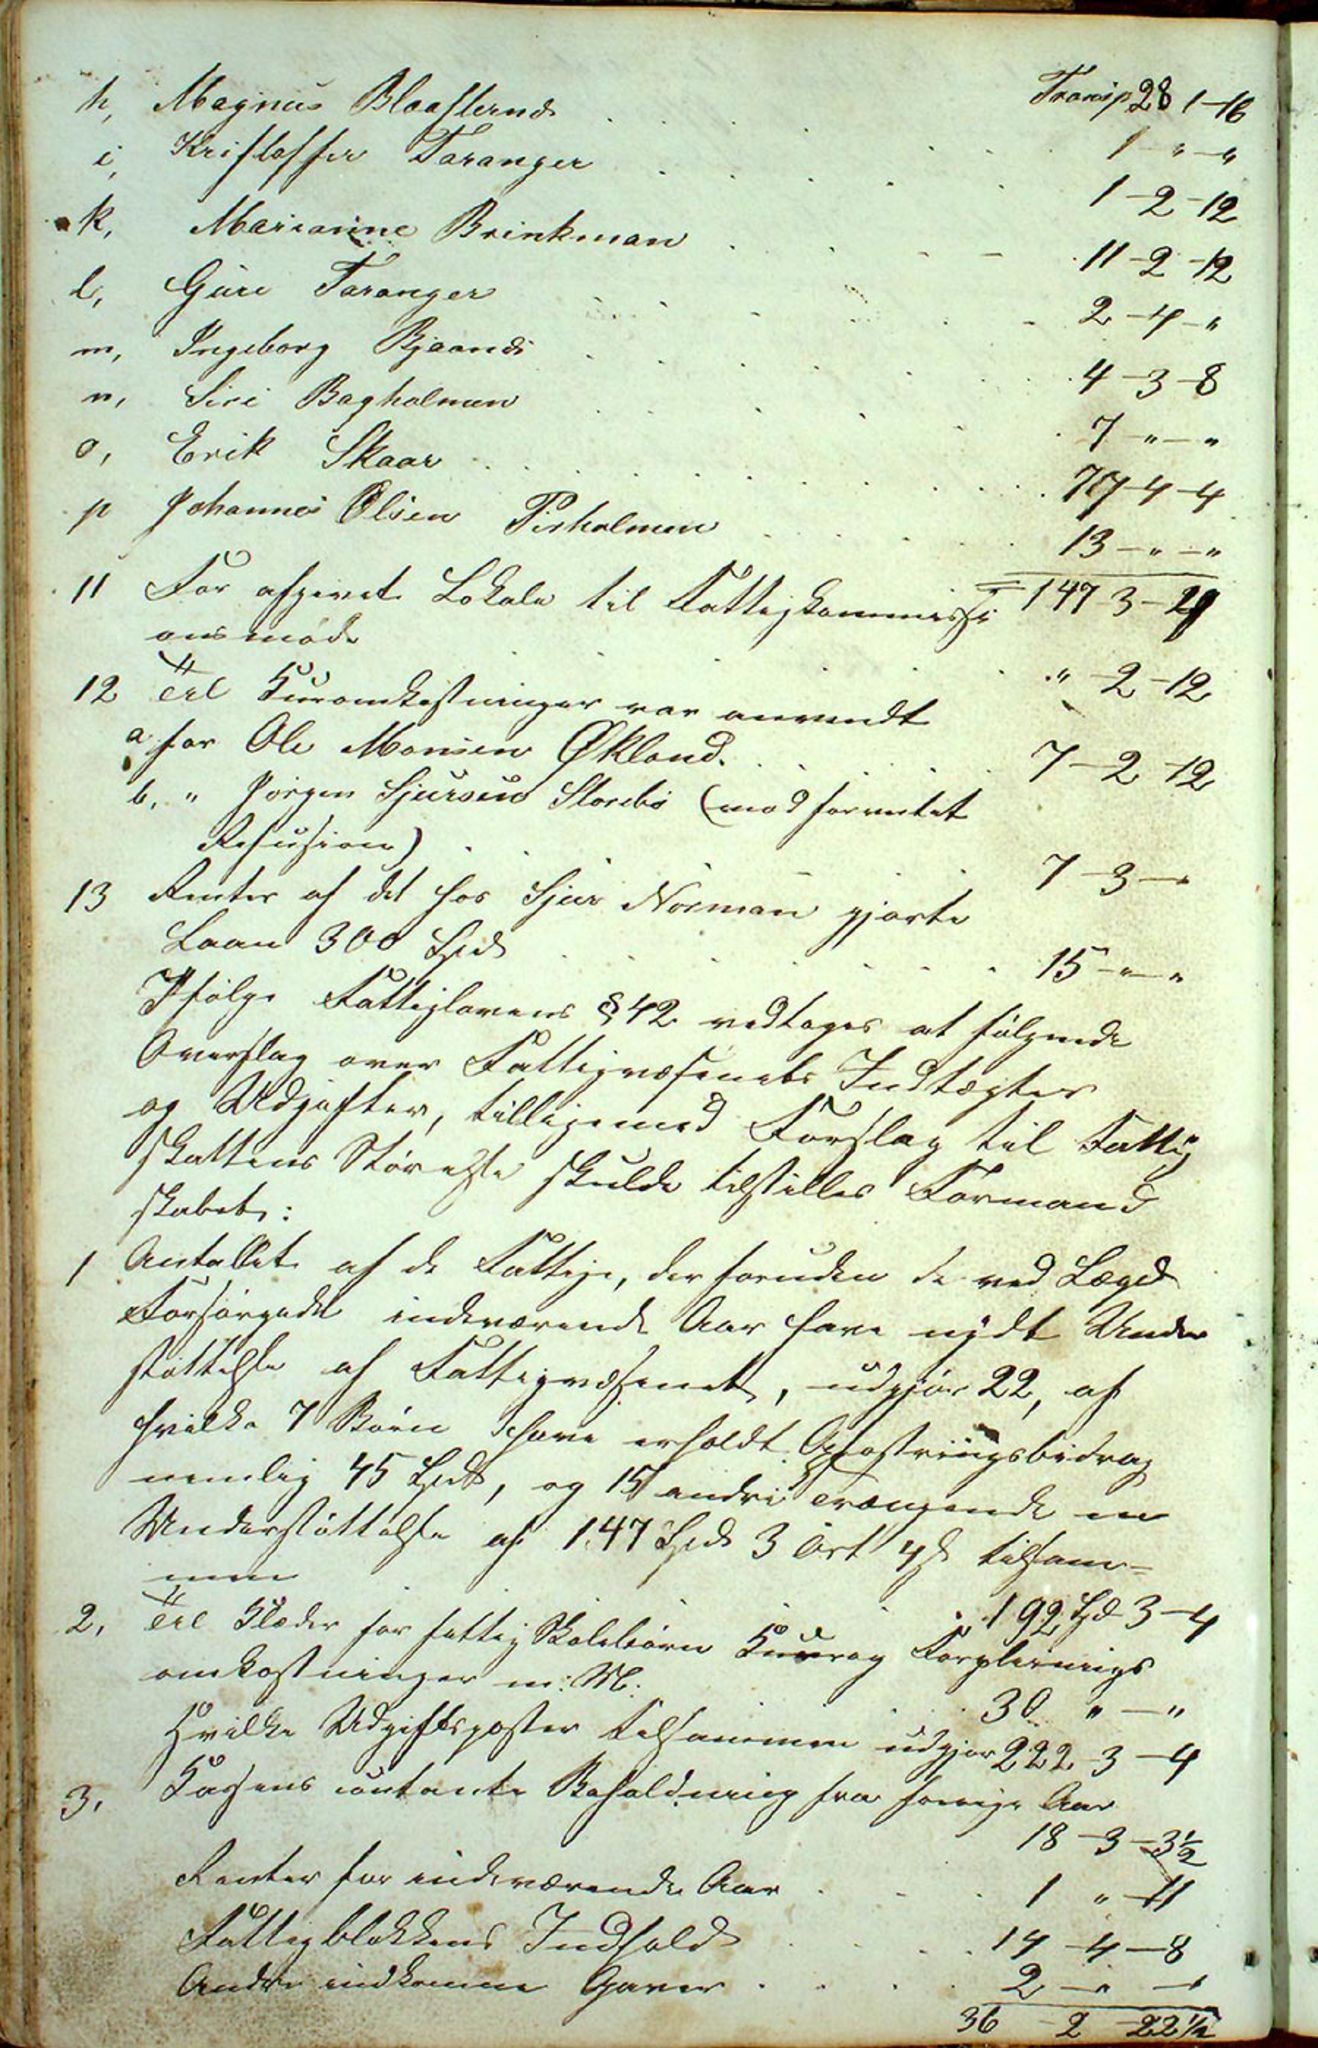 Transp 28 1-16
h, Magnus Blaaflernd . . . 1 - " - "
i, Kristoffer Taranger . . . 1 - 2 - 12
k, Marianne Brinkman . . . 11 - 2 - 12
l, Guri Taranger . . . 2 - 4 - "
m, Ingeborg Bjaanæs . . . 4 - 3 - 8
n, Siri Bagholmen . . . 7 - " - "
o, Erik Skaar . . . 77 - 4 - 4
p Johannes Olsen Pirholmen . . . 13 - " - "
11 For afgivet Lokale til Fattigkommissi = 147 3 -
onsmøde . . . " - 2 - 12
12 Til Kuromkostninger var anvendt
a for Ole Monsen Økland. . . . 7 - 2 - 12
b, " Jørgen Sjursen Storebø (mod forventet
Refusion) . . . 7 - 3 - "
13 Renter af det hos Sjur Norman gjorte
Laan 300 Spd . . . 15 - " - "
Ifølge Fattiglovens § 42 vedtoges at følgende
Overslag over Fattigvæsenets Indtægter
og Udgifter, tilligemed Forslag til Fattig
skattens Størrelse skulde tilstilles Formand
skabet:
1 Antallet af de Fattige, der foruden de ved Lægd
Forsørgede indeværende Aar have nydt Under
støttelse af Fattigvæsenet, udgjør 22, af
hvilke 7 Børn have erholdt Opfostringsbidrag
nemlig 45 Spd, og 15 andre Trængende en
Understøttelse af 147 Spd 3 Ort 4 s tilsam-
men . . . 192 Spd 3 - 4
2, Til Klæder for fattig Skolebørn Kur og Forpleinings
omkostninger m: M: . . . 30 " - "
Hvilke Udgiftsposter tilsammen udgjør 222 3 - 4
3, Kassens contante Beholdning fra forrige Aar
18 - 3 - 3½
Renter for indeværende Aar . . . 1 " - 11
Fattigblokkens Indhold . . . 14 - 4 - 8
Andre indkomne Gaver . . . 2 - " - "
36 - 2 - 22½